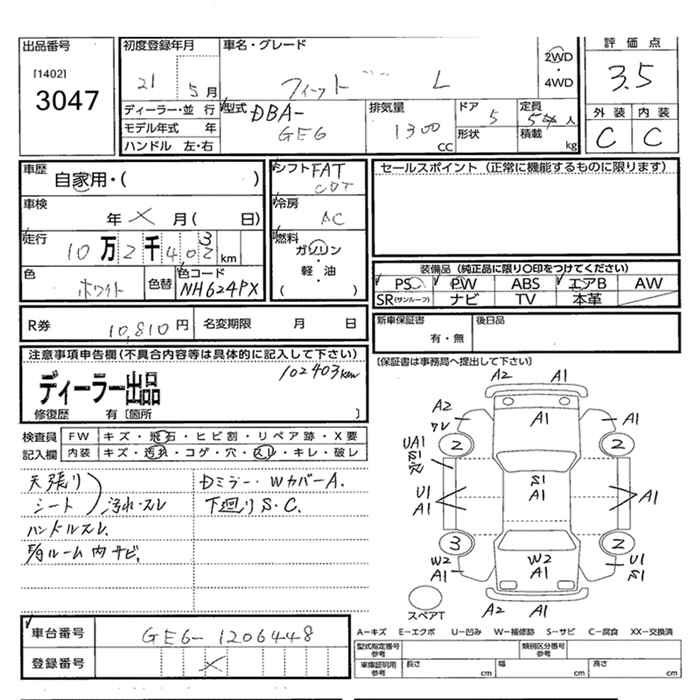 出品番号
[1402]
3047
初度登録年月
21 5月
車名・グレード
フィット L
2WD
・
4WD
評価点
3.5
外装 内装
C C
ディーラー・並行
モデル年式 年
ハンドル 左・右
型式 DBA-
GE6
排気量
1300
CC
ドア 5
形状
定員 5 人
積載 kg
車歴
自家用・( )
車検
年 X 月( 日)
走行
10万2千403km
色
ホワイト
色替
色コード
NH624PX
シフト FAT
CVT
冷房
AC
燃料
ガソリン
・
軽・油
( )
セールスポイント (正常に機能するものに限ります)
装備品 (純正品に限り○印をつけてください)
PS PW ABS エアB AW
SR(サンルーフ) ナビ TV 本革
R券 10,810円 名変期限 月 日
新車保証書
有・無
後日品
[保証書は事務局へ提出して下さい]
注意事項申告欄(不具合内容等は具体的に記入して下さい)
102403km
ディーラー出品
修復歴 有[箇所 ]
検査員
記入欄
FW キズ・飛石・ヒビ割・リペア跡・X要
内装 キズ・汚れ・コゲ・穴・スレ・キレ・破レ
天張り
シート 汚れ・スレ
ハンドルスレ
ルーム内ナビ
Dミラー・WカバーA.
下廻りS・C.
A2 A1
A1
A2
ワレ
A1
A2
2 2
UA1
S1
穴
S1
A1
U1
A1
A1
3 2
W2
A1
W2
A1
U1
S1
A2 A1
スペアT
A-キズ E-エクボ U-凹み W-補修跡 S-サビ C-腐食 XX-交換済
車台番号 GE6-1206448
登録番号 X
型式指定番号
参考
類別区分番号
参考
車庫証明用
参考
長さ cm 幅 cm 高さ cm